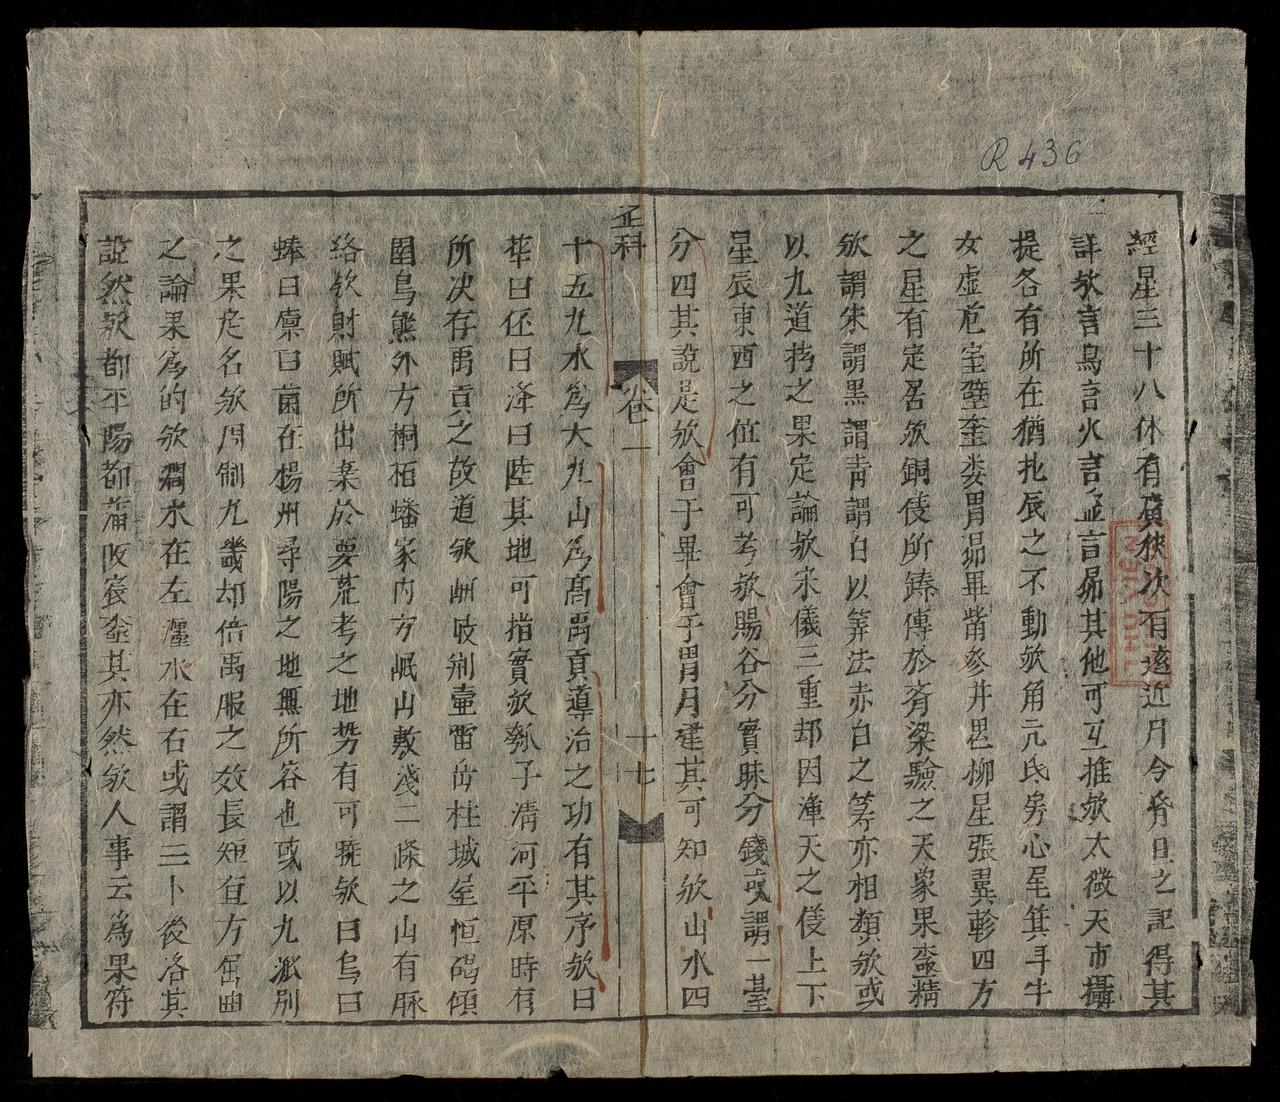 R 436
經星二十八休有廣狹次有遠近月令脊日之記得其
詳欤言鳥言火言虛言昴其他可互推欤太微天市攝
提各有所在猶北辰之不動欤角亢氐房心尾箕斗牛
女虛危室壁奎娄胃昴畢觜參井鬼柳星張翼軫四方
之星有定居欤銅儀所鑄傳於齊梁驗之天象果無精
欤謂朱謂黑謂青謂白以筭法赤白之筹亦相類欤或
以九道攷之果定論欤宋儀三重却因渾天之儀上下
星辰東西之位有可考欤暘谷分賓昧分餞或謂一臺
分四其說是欤會于畢會于胃月建其可知欤山水四
正科
卷一
十七
十五九水爲大九山爲髙禹貢導治之功有其序欤曰
華曰伾曰洚曰陸其地可指實欤瓠子清河平原時有
所决存禹貢之故道欤岍岐荆壷雷岳柱城屋恒碣傾
圉鳥熊外方桐栢嶓家内方岷山敷淺二條之山有脉
络欤財賦所出葉於要荒考之地势有可曉欤曰烏曰
蜯曰廪曰菌在楊州尋陽之地無所容也或以九派别
之果定名欤周制九畿却倍禹服之效長短直方屈曲
之論果爲的欤澗水在左瀍水在右或謂三卜後洛其
說然欤都平陽都蒲阪安其亦然欤人事云爲果符